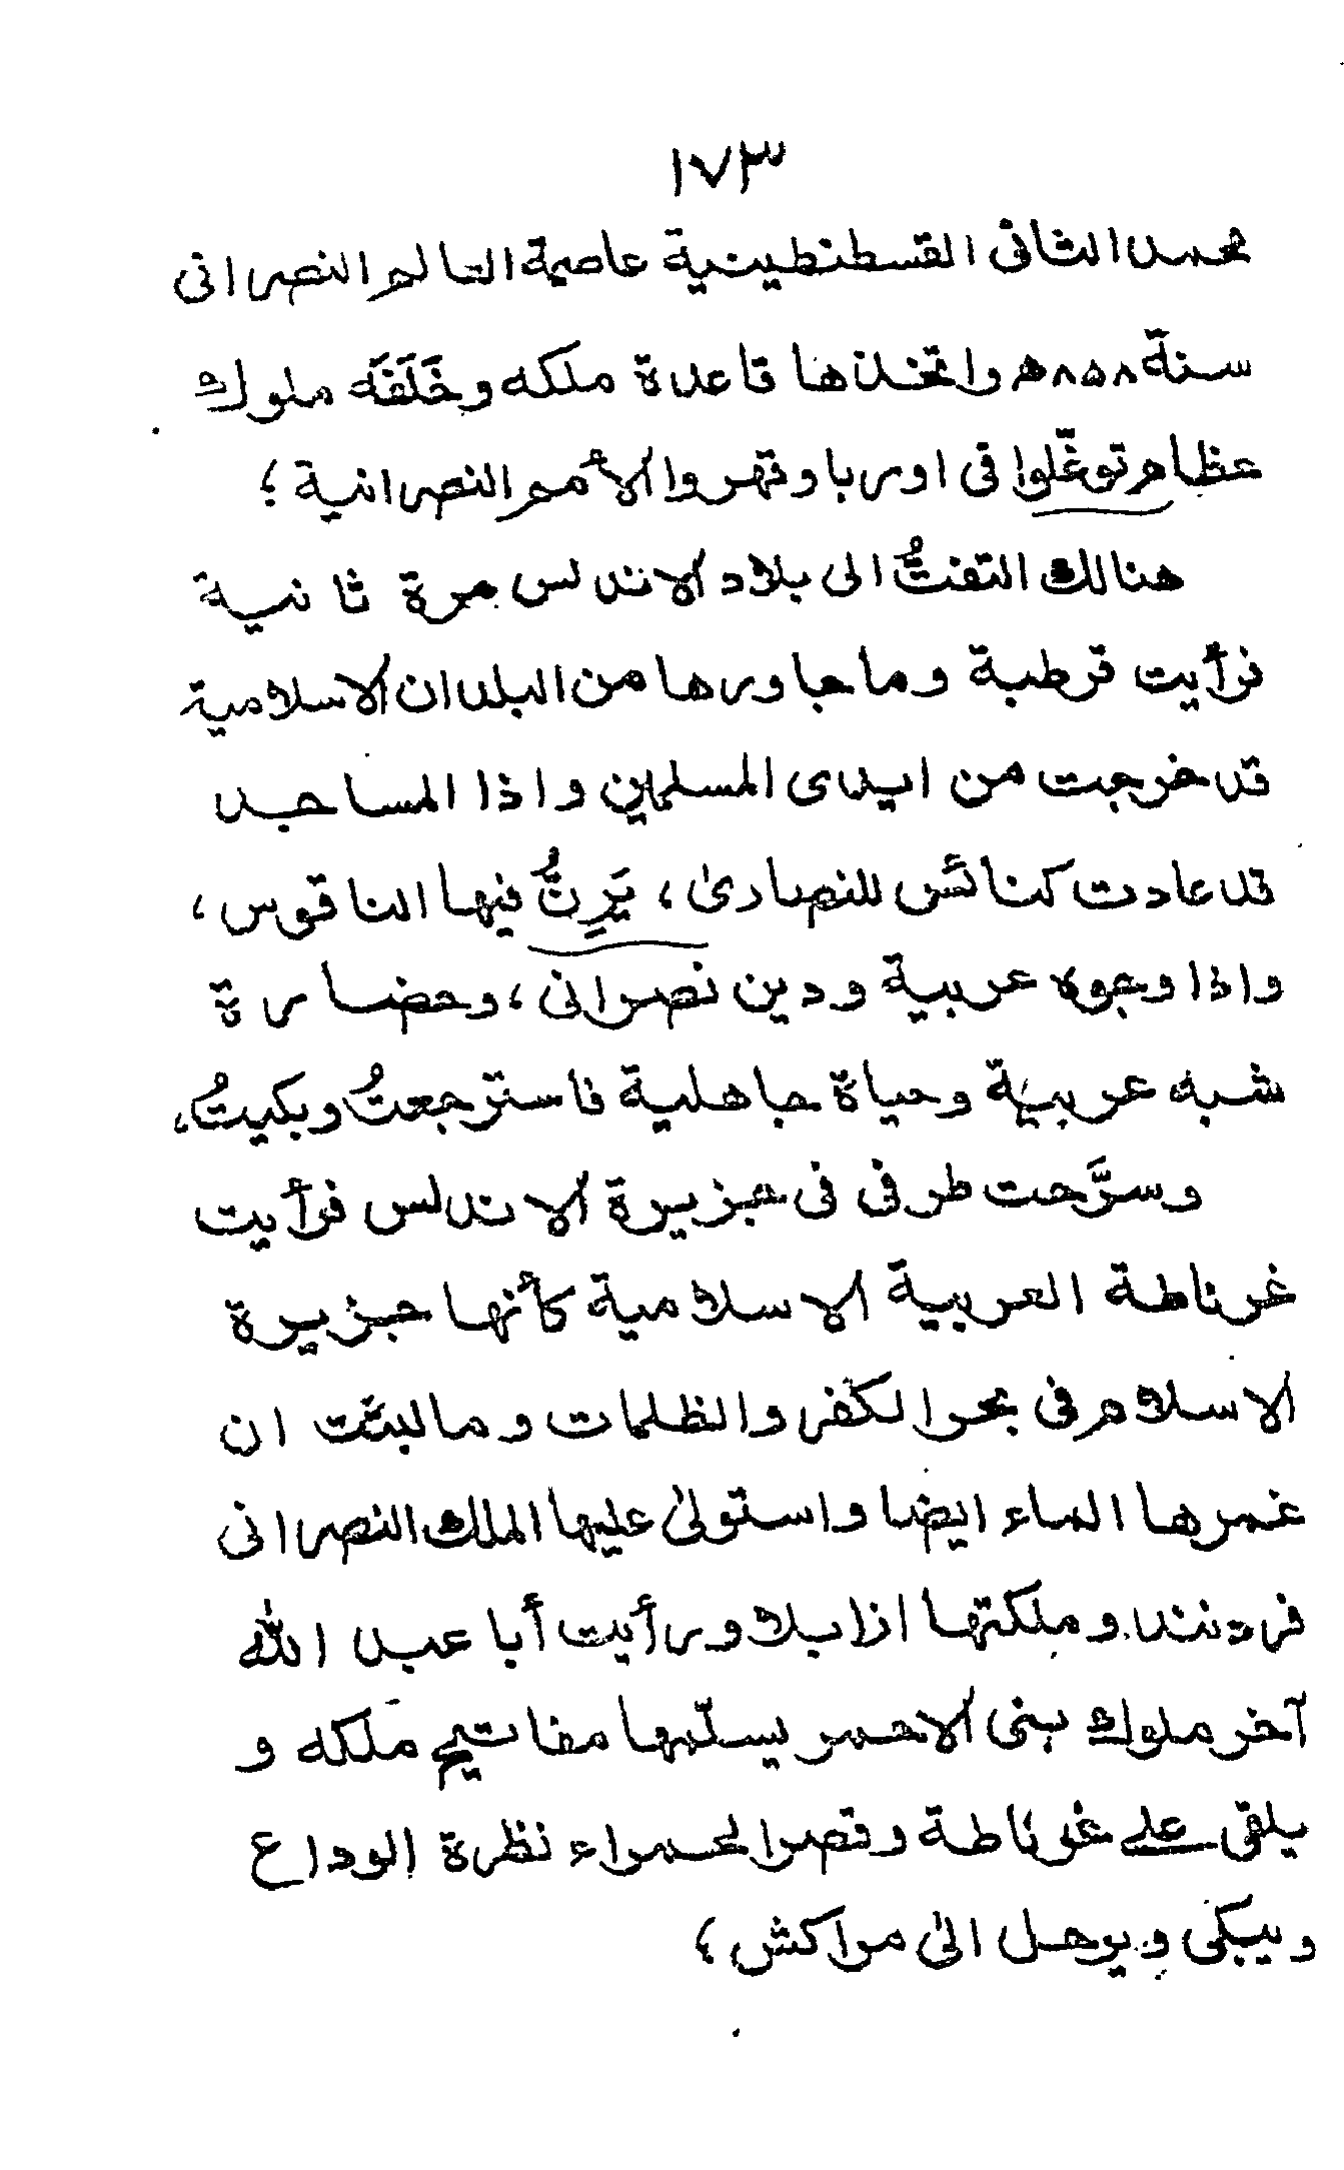 ١٧٣
محمد الثانى القسطنطينية عاصمة العالم النصرانى
سنة ٨٥٨ھ واتخذها قاعدة ملكه وخَلَفَه ملوك
عظام توغّلوا فى اوربا وقهروا الأمم النصرانية ؛
هنالك التفتُّ الى بلاد الاندلس مرة ثانية
فرأيت قرطبة وما جاورها من البلدان الاسلامية
قد خرجت من ايدى المسلمين واذا المساجد
قد عادت كنائس للنصارىٰ ، يَرِنُّ فيها الناقوس ،
واذا وجوه عربية ودين نصرانى ، وحضارة
شبه عربية وحياة جاهلية فاسترجعتُ وبكيتُ،
وسرَّحت طرفى فى جزيرة الاندلس فرأيت
غرناطة العربية الاسلامية كأنها جزيرة
الاسلام فى بحر الكفر والظلمات وما لبثت ان
غمرها الماء ايضا واستولىٰ عليها الملك النصرانى
فردنند وملكتها ازابلا ورأيت أبا عبد الله
آخر ملوك بنى الاحمر يسلّمها مفاتيح ملكه و
يلقى علے غرناطة وقصر الحمراء نظرة الوداع
ويبكى ويرحل الىٰ مراكش ؛